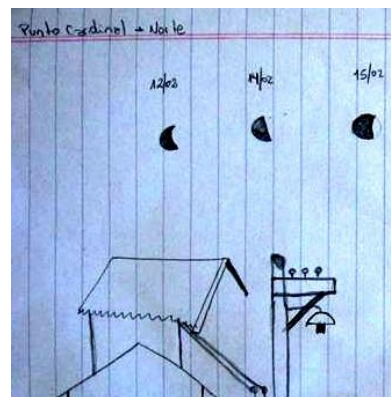 Punto Cardinal → Norte
12/02
14/02
15/02